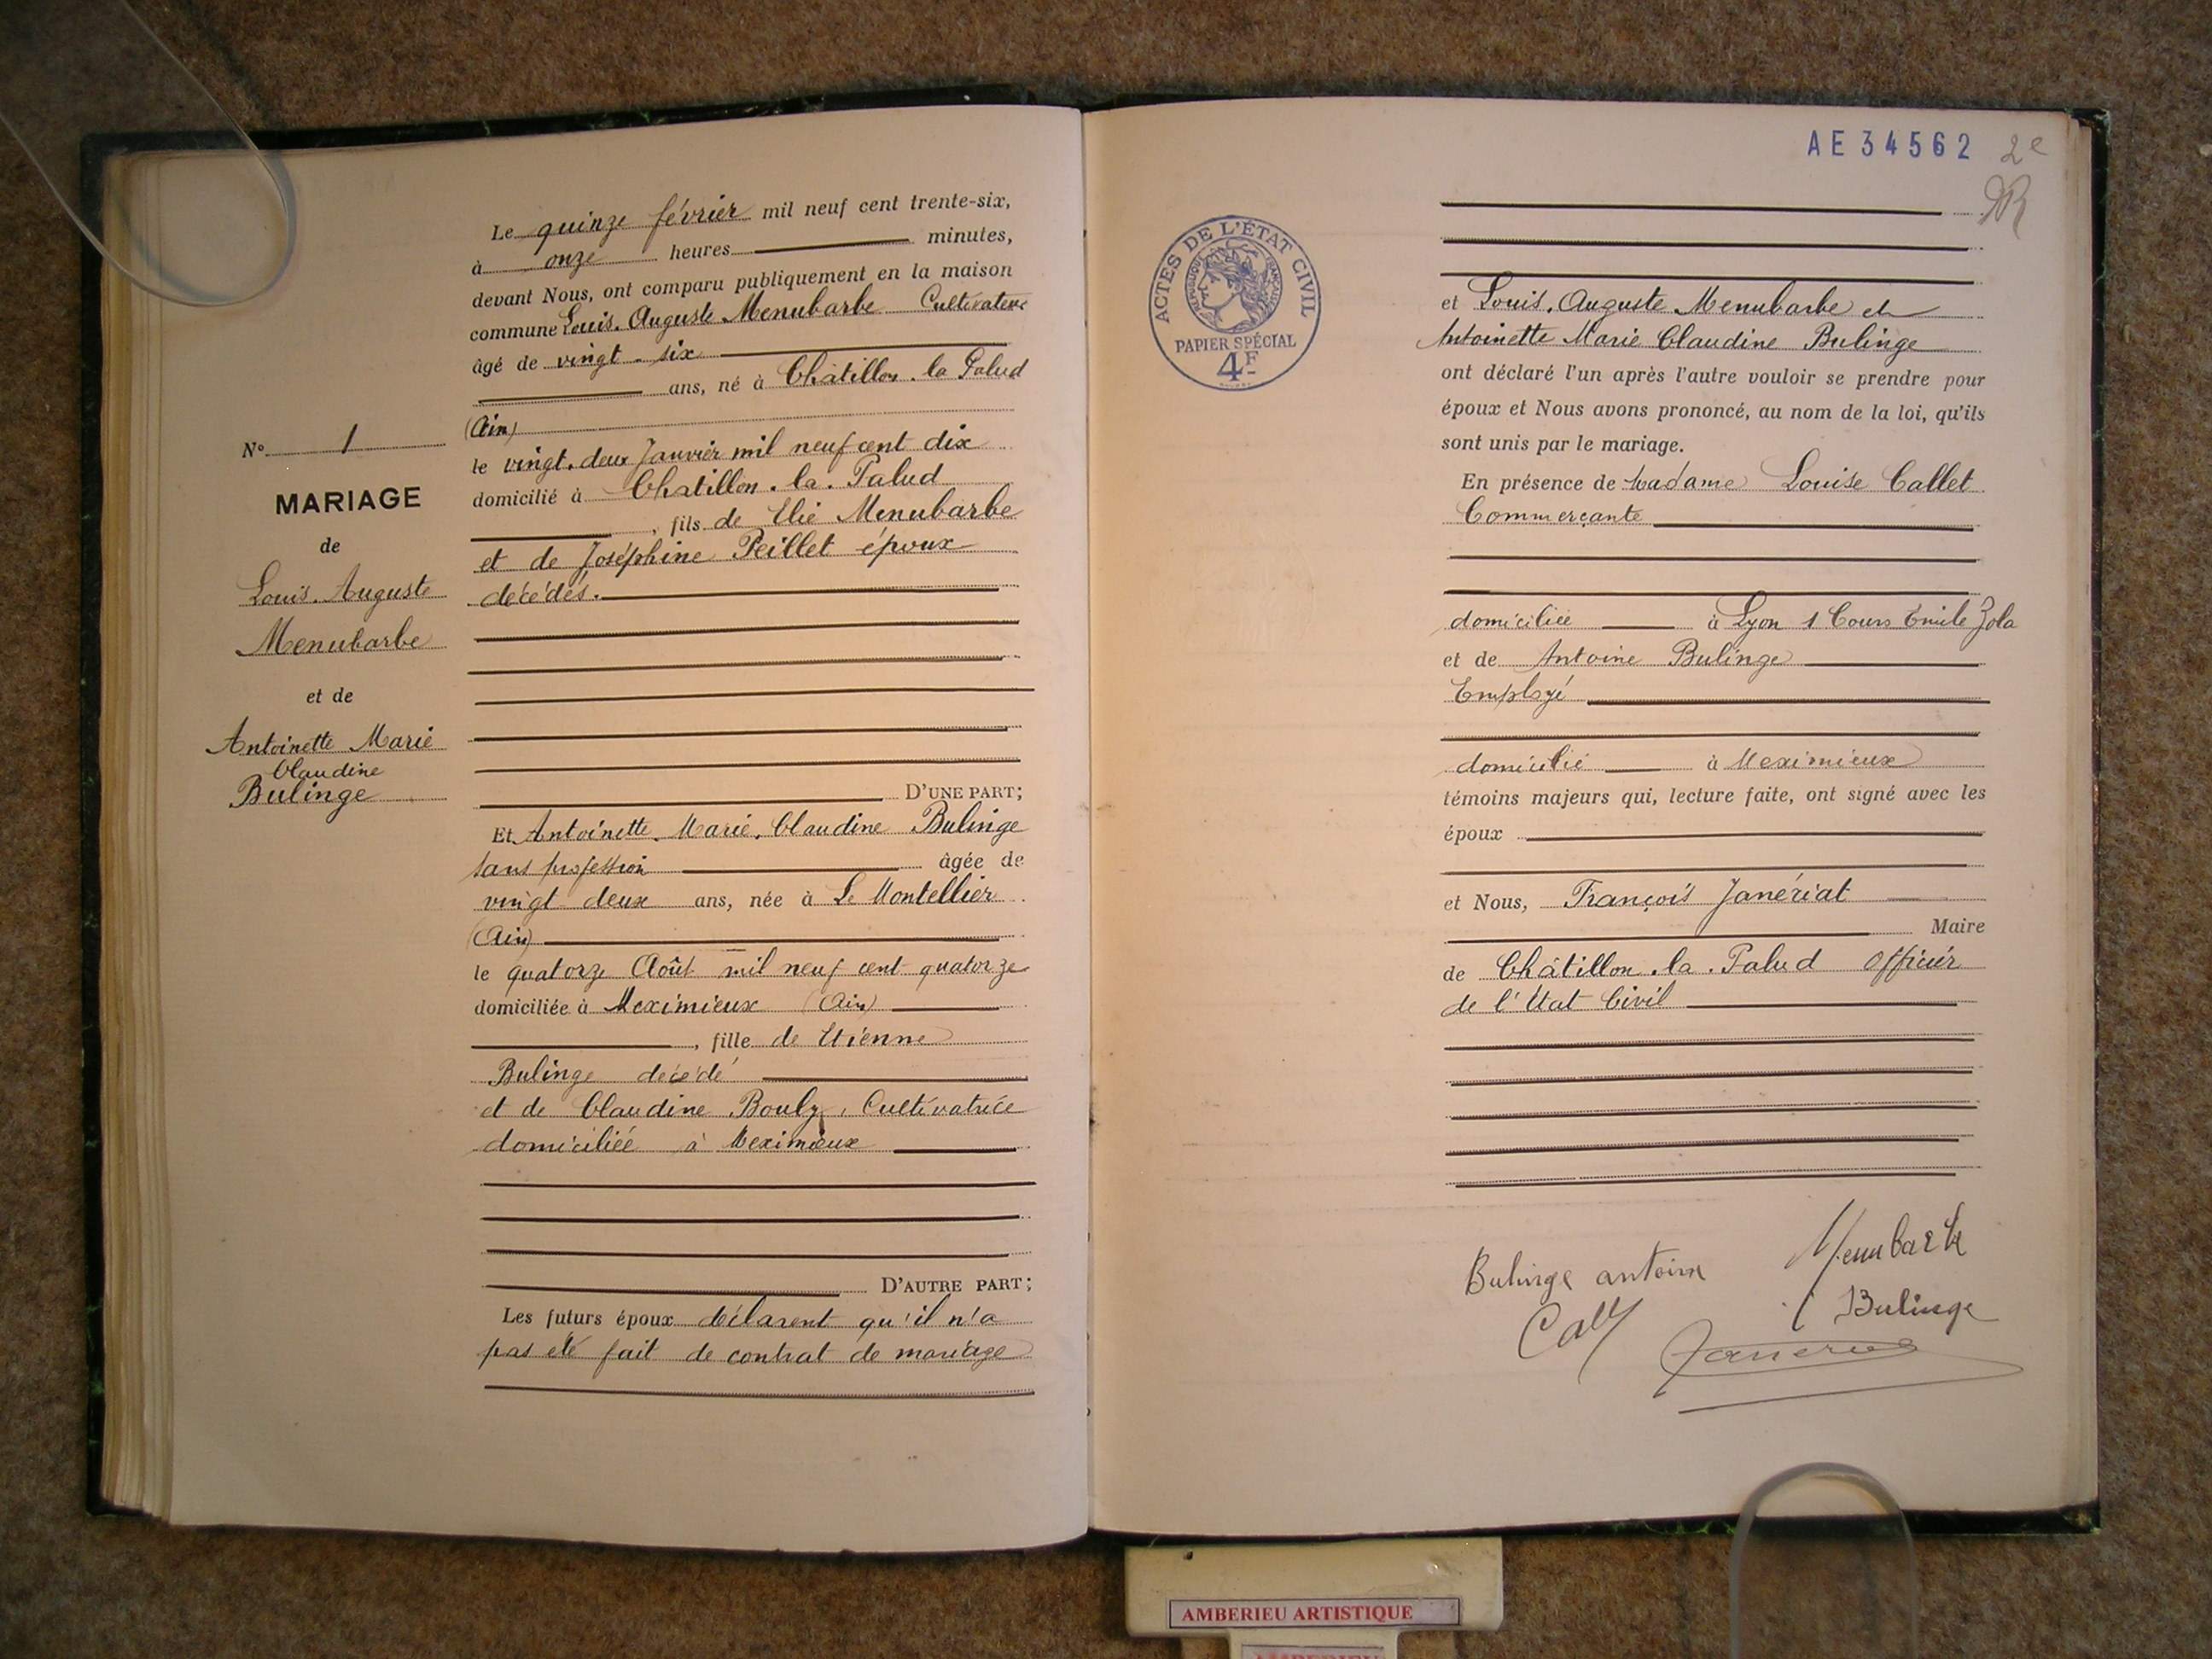 Le quinze février mil neuf cent trente-six,
à onze heures minutes,
devant Nous, ont comparu publiquement en la maison
commune Louis. Auguste Menubarbe Cultivateur
âgé de vingt-six
ans, né à Châtillon-la-Palud
(Ain)
le vingt-deux Janvier mil neuf cent dix
domicilié à Chatillon-la-Palud
, fils de Elie Menubarbe
et de Joséphine Peillet époux
décédés.
N° 1
MARIAGE
de
Louis. Auguste
Menubarbe
et de
Antoinette Marie
Claudine
Bulinge
D'UNE PART;
Et Antoinette. Marie. Claudine Bulinge
sans profession âgée de
vingt deux ans, née à Le Montellier
(Ain)
le quatorze Août mil neuf cent quatorze
domiciliée à Meximieux (Ain)
, fille de Etienne
Bulinge décédé
et de Claudine Bouly, Cultivatrice
domiciliée à Meximieux
D'AUTRE PART;
Les futurs époux déclarent qu'il n'a
pas été fait de contrat de mariage
AE34562 2e
ACTES DE L'ÉTAT CIVIL
RÉPUBLIQUE FRANÇAISE
PAPIER SPÉCIAL
4F
et Louis. Auguste Menubarbe et
Antoinette Marie Claudine Bulinge
ont déclaré l'un après l'autre vouloir se prendre pour
époux et Nous avons prononcé, au nom de la loi, qu'ils
sont unis par le mariage.
En présence de Madame Louise Callet
Commerçante
domiciliée à Lyon 1 Cours Emile Zola
et de Antoine Bulinge
Employé
domicilié à Meximieux
témoins majeurs qui, lecture faite, ont signé avec les
époux
et Nous, François Janériat
Maire
de Châtillon-la-Palud Officier
de l'Etat Civil
Bulinge antoine Menubarbe
Bulinge
AMBERIEU ARTISTIQUE
AMBERIEU